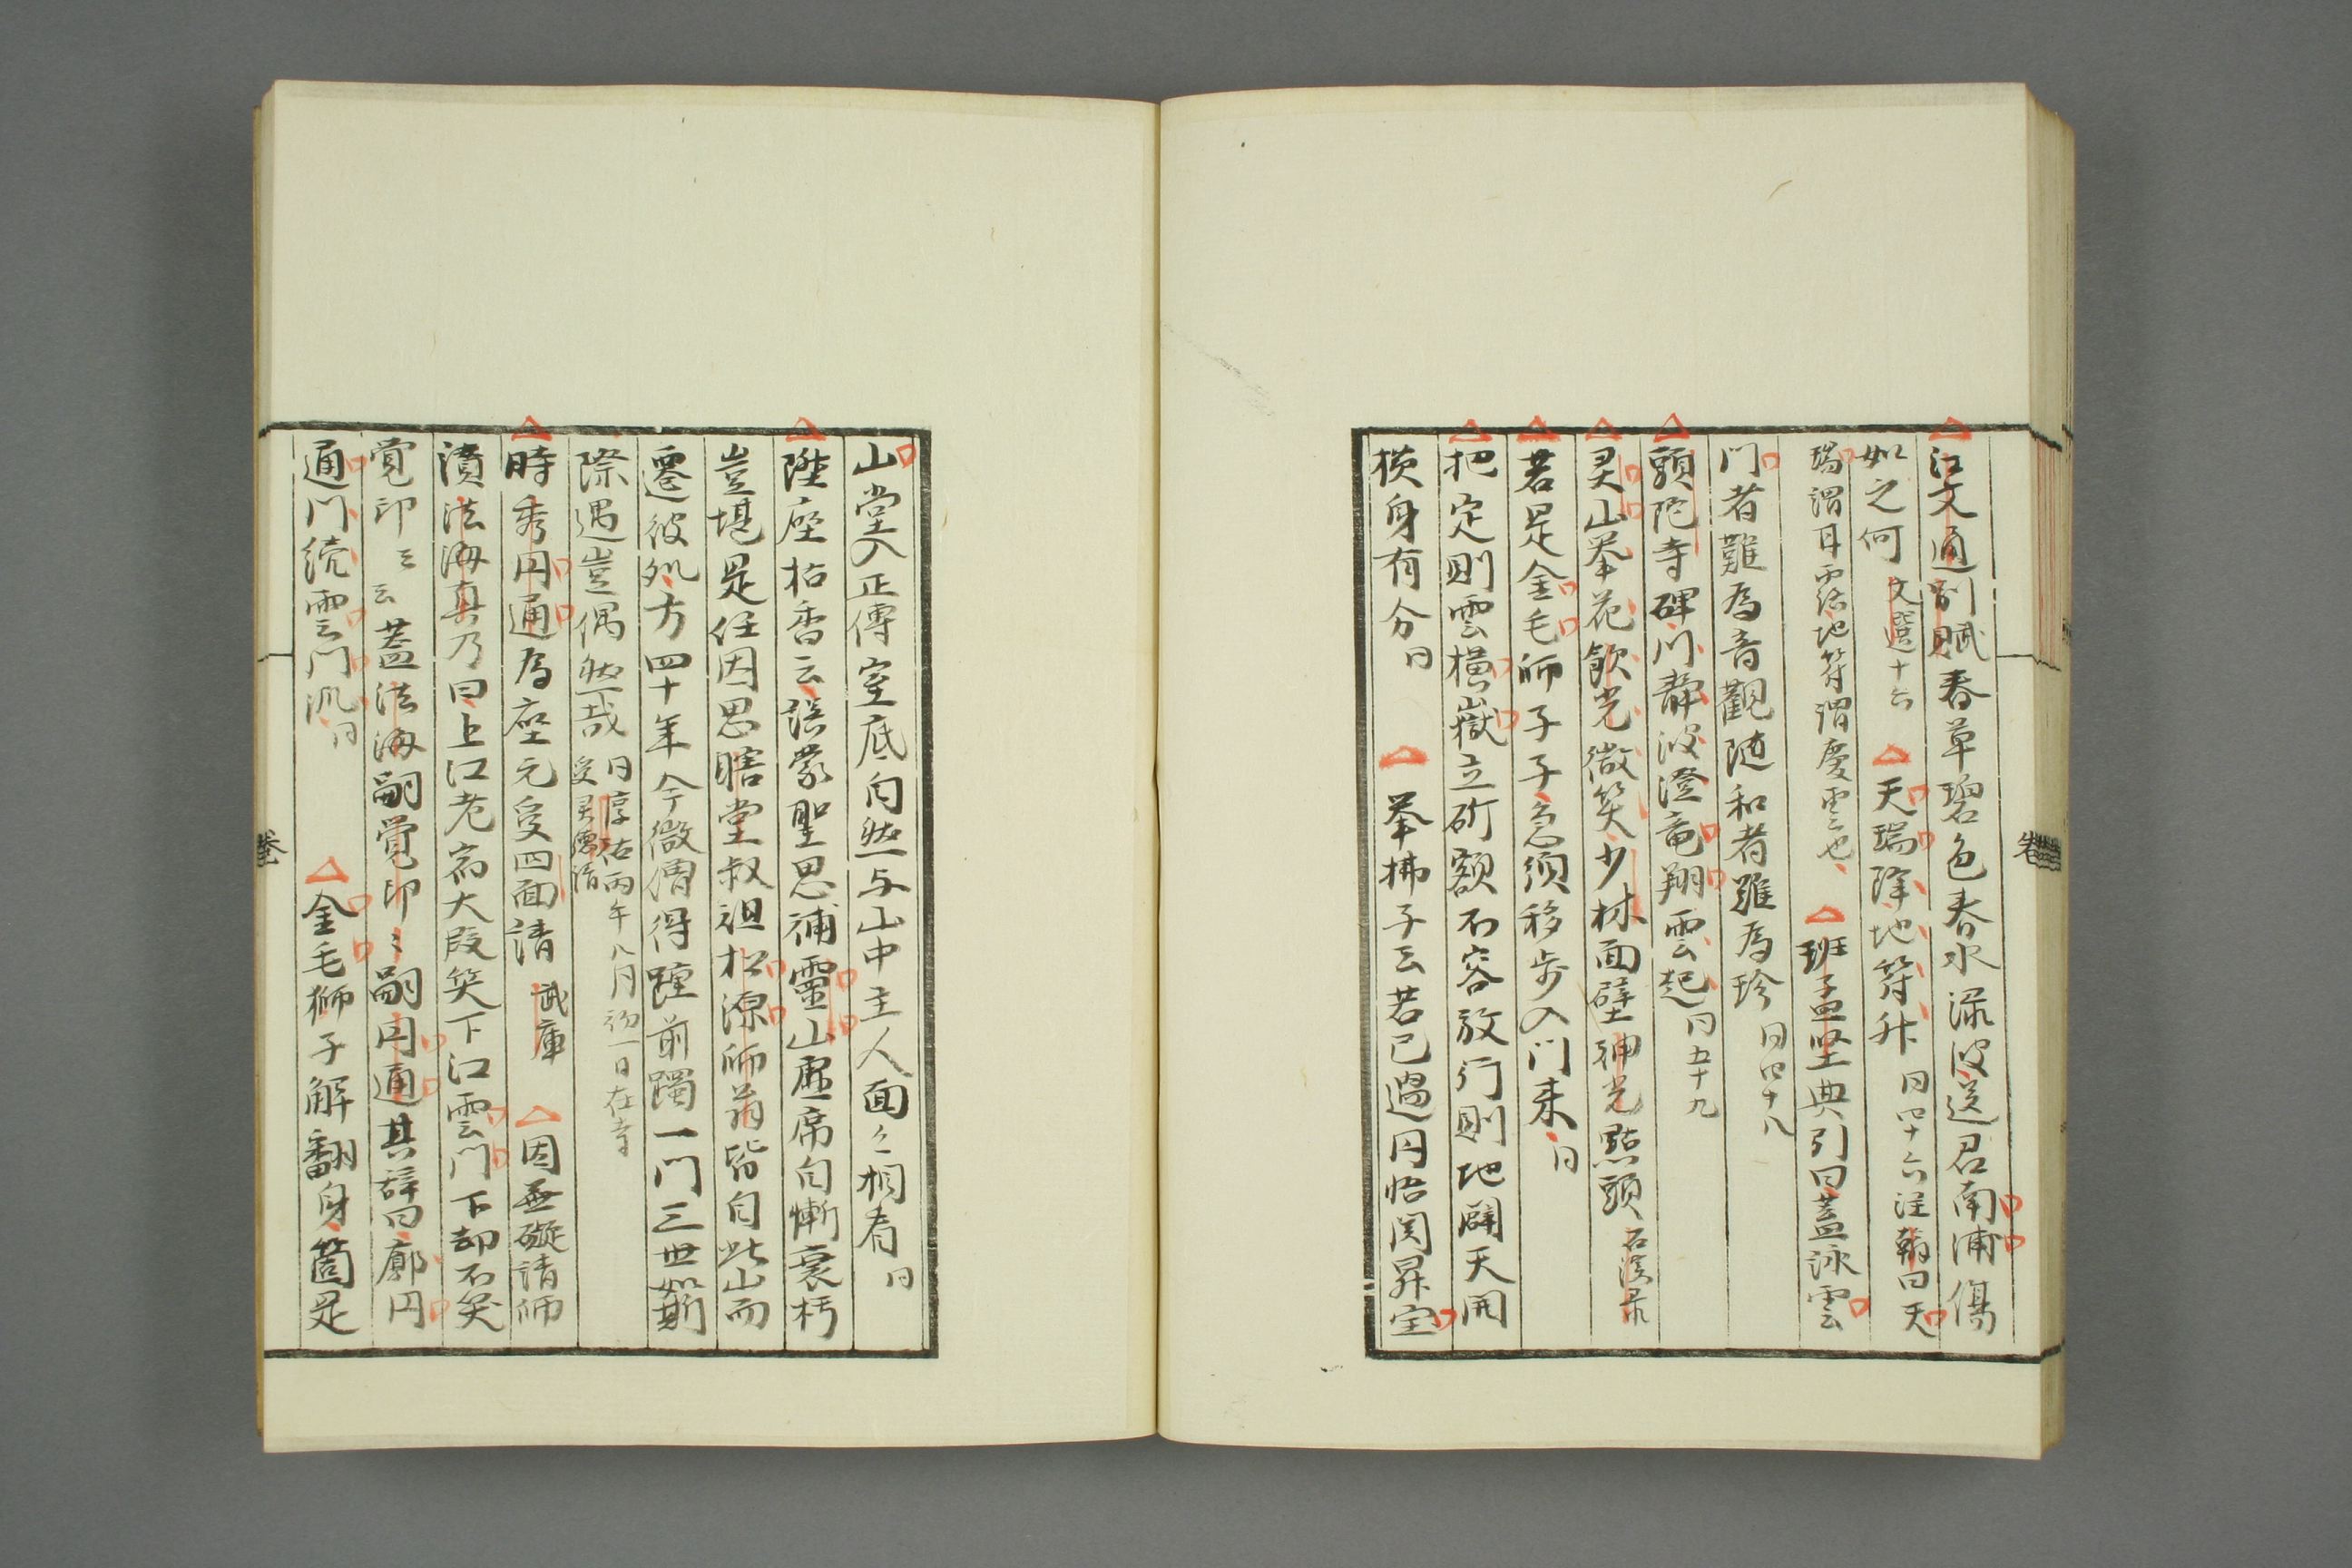 江文通別賦春草碧色春水渌波送君南浦傷
如之何 文選十六 天瑞降地符升 同四十六注翰曰天
瑞謂耳露地符謂慶雲也 班孟堅典引曰蓋詠雲
門者難為音觀随和者難為珍 同四十八
頭陀寺碑川静波澄竜翔雲起 同五十九
灵山拳花飲光微笑少林面壁神光點頭 石溪录
若是金毛师子子急須移步入门来 同
把定則雲横嶽立斫額不容放行則地闢天開
横身有分 同 挙拂子云若已過円悟関昇堂
卷
山堂入正傳室底自然与山中主人面〻相看 同
陞座拈香云誤蒙聖恩補靈山虚席自慚衰朽
豈堪是任因思瞎堂叔祖松源师翁皆自此山而
遷彼処方四十年今微偶得踵前躅一门三世如斯
際遇豈偶然哉 同淳祐丙午八月初一日在寺
受灵隱請
時秀円通為座元受四面請 武庫 因無礙請师
瀆法海真乃曰上江老宿大段笑下江雲门下却不笑
覚印〻云蓋法海嗣覚印〻嗣円通其辞曰廓円
通门続雲门派 同 金毛獅子解翻身箇是
卷